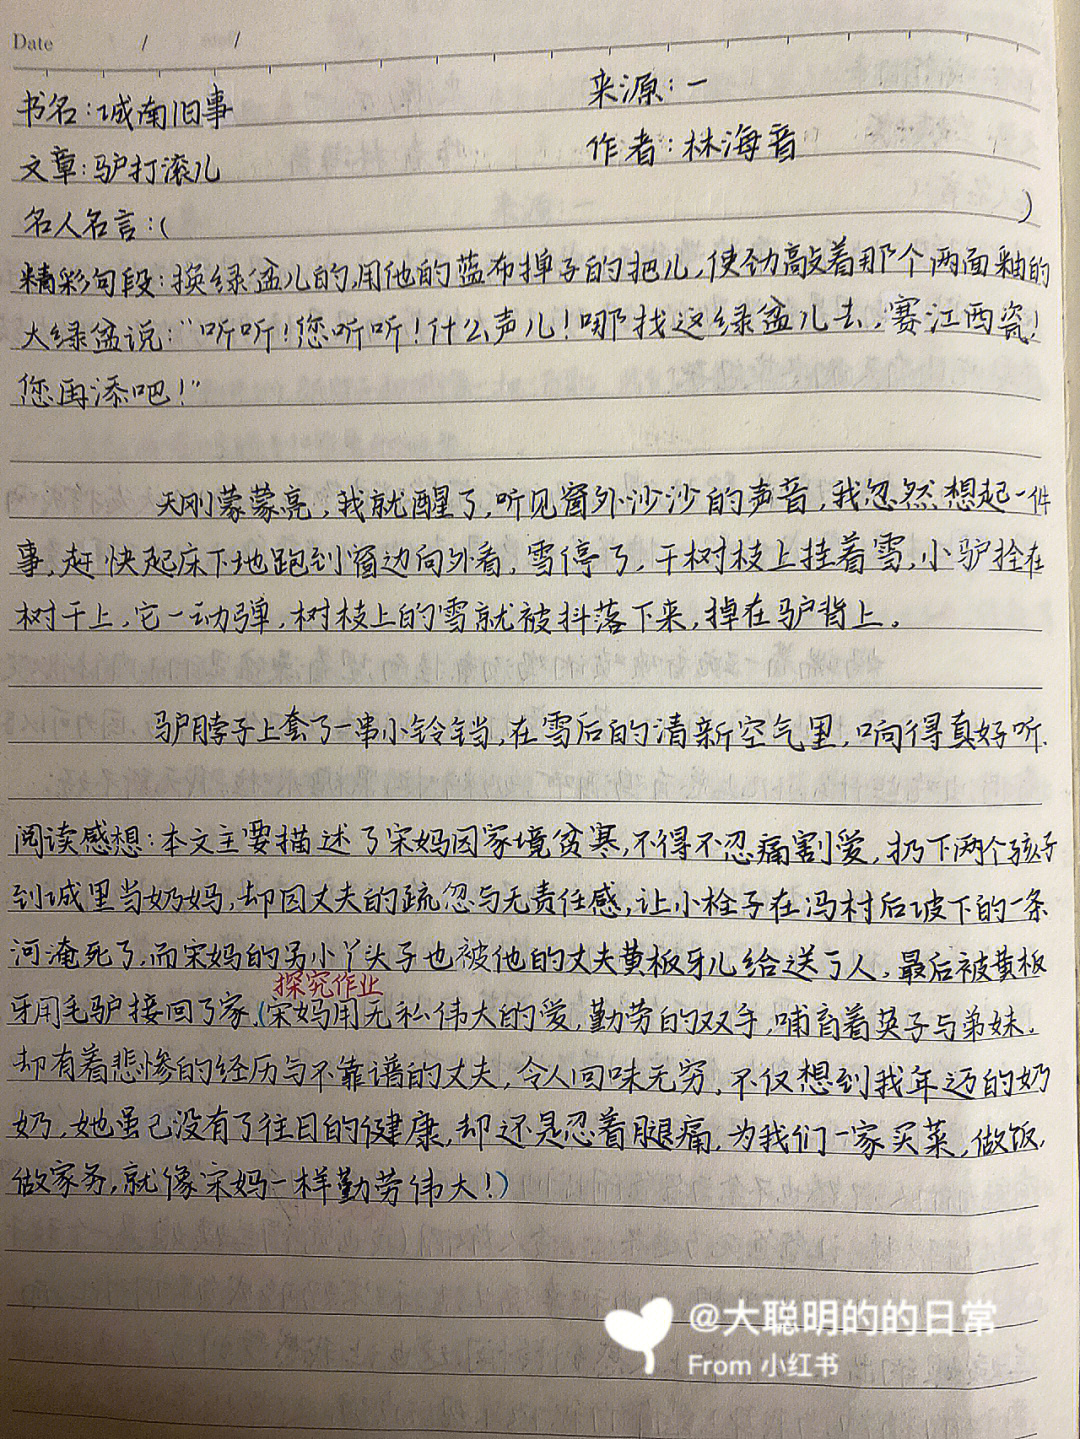 Date / /
书名：城南旧事 来源：一
文章：驴打滚儿 作者：林海音
名人名言：( )
精彩句段：换绿盆儿的，用他的蓝布掸子的把儿，使劲敲着那个两面釉的
大绿盆说：“听听！您听听！什么声儿！哪找这绿盆儿去，赛江西瓷！
您再添吧！”
天刚蒙蒙亮，我就醒了，听见窗外沙沙的声音，我忽然想起一件
事，赶快起床下地跑到窗边向外看，雪停了，干树枝上挂着雪，小驴拴在
树干上，它一动弹，树枝上的雪就被抖落下来，掉在驴背上。
驴脖子上套了一串小铃铛，在雪后的清新空气里，响得真好听．
阅读感想：本文主要描述了宋妈因家境贫寒，不得不忍痛割爱，扔下两个孩子
到城里当奶妈，却因丈夫的疏忽与无责任感，让小栓子在冯村后坡下的一条
河淹死了，而宋妈的另小丫头子也被他的丈夫黄板牙儿给送了人，最后被黄板
探究作业
牙用毛驴接回了家．(宋妈用无私伟大的爱，勤劳的双手，哺育着英子与弟妹．
却有着悲惨的经历与不靠谱的丈夫，令人回味无穷，不仅想到我年迈的奶
奶，她虽已没有了往日的健康，却还是忍着腿痛，为我们一家买菜，做饭，
做家务，就像宋妈一样勤劳伟大！)
@大聪明的的日常
From 小红书